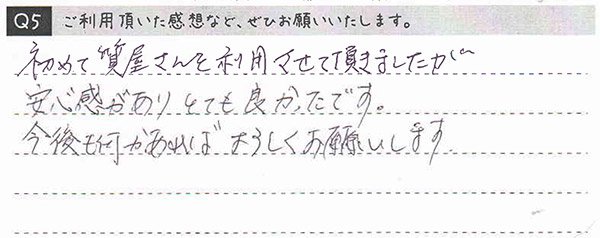 Q5 ご利用頂いた感想など、ぜひお願いいたします。
初めて質屋さんを利用させて頂きましたが
安心感がありとても良かったです。
今後も何かあればよろしくお願いします